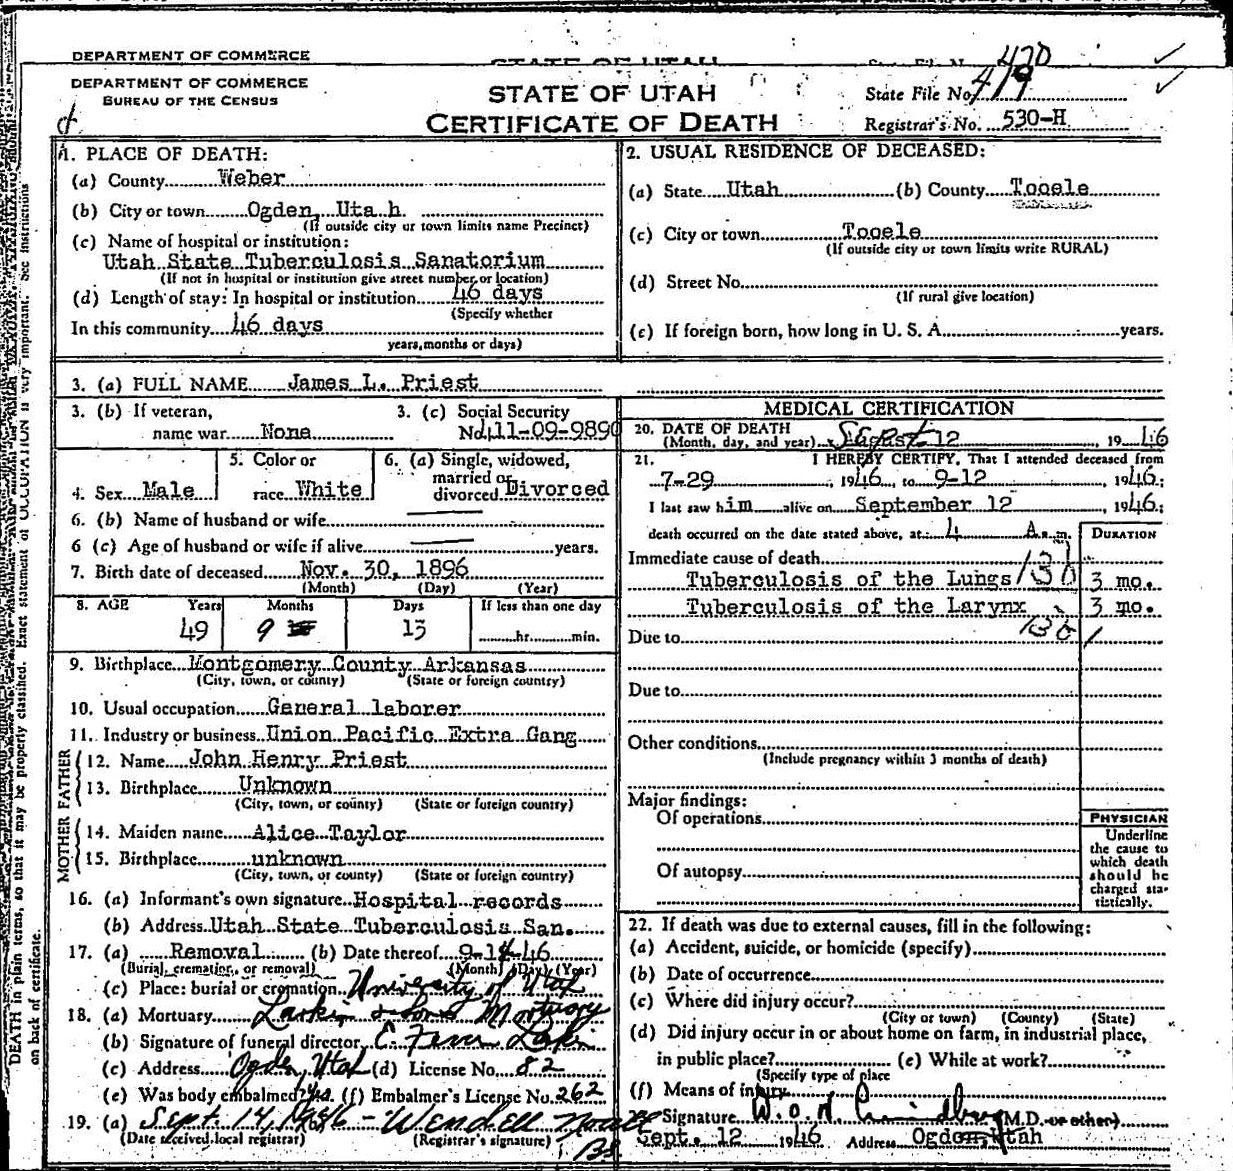 DEPARTMENT OF COMMERCE
STATE OF UTAH
420
DEPARTMENT OF COMMERCE
BUREAU OF THE CENSUS
STATE OF UTAH
CERTIFICATE OF DEATH
State File No. 419
Registrar's No. 530-H
1. PLACE OF DEATH:
(a) County Weber
(b) City or town Ogden, Uta h.
(If outside city or town limits name Precinct)
(c) Name of hospital or institution:
Utah State Tuberculosis Sanatorium
(If not in hospital or institution give street number or location)
(d) Length of stay: In hospital or institution 46 days
(Specify whether
In this community 46 days
years, months or days)
2. USUAL RESIDENCE OF DECEASED:
(a) State Utah (b) County Tooele
(c) City or town Tooele
(If outside city or town limits write RURAL)
(d) Street No.
(If rural give location)
(e) If foreign born, how long in U. S. A. years.
3. (a) FULL NAME James L. Priest
3. (b) If veteran,
name war None
3. (c) Social Security
No. 411-09-9890
4. Sex Male
5. Color or
race White
6. (a) Single, widowed,
married or
divorced Divorced
6. (b) Name of husband or wife
6 (c) Age of husband or wife if alive years.
7. Birth date of deceased Nov. 30, 1896
(Month) (Day) (Year)
8. AGE Years Months Days If less than one day
49 9 13 hr. min.
9. Birthplace Montgomery County Arkansas
(City, town, or county) (State or foreign country)
10. Usual occupation General laborer
11. Industry or business Union Pacific Extra Gang
FATHER
12. Name John Henry Priest
13. Birthplace Unknown
(City, town, or county) (State or foreign country)
MOTHER
14. Maiden name Alice Taylor
15. Birthplace unknown
(City, town, or county) (State or foreign country)
16. (a) Informant's own signature Hospital records
(b) Address Utah State Tuberculosis San.
17. (a) Removal (b) Date thereof 9-14-46
(Burial, cremation, or removal) (Month) (Day) (Year)
(c) Place: burial or cremation University of Utah
18. (a) Mortuary Larkin & Sons Mortuary
(b) Signature of funeral director
(c) Address Ogden, Utah (d) License No. 82
(e) Was body embalmed? Yes (f) Embalmer's License No. 262
19. (a) Sept. 14, 1946 - Wendell
(Date received local registrar) (Registrar's signature)
MEDICAL CERTIFICATION
20. DATE OF DEATH
(Month, day, and year) 12, 19 46
21. I HEREBY CERTIFY, That I attended deceased from
7-29, 1946, to 9-12, 1946;
I last saw him alive on September 12, 1946;
death occurred on the date stated above, at 4 A. m.
DURATION
Immediate cause of death
Tuberculosis of the Lungs 3 mo.
Tuberculosis of the Larynx 3 mo.
Due to
Due to
Other conditions
(Include pregnancy within 3 months of death)
Major findings:
Of operations
Of autopsy
PHYSICIAN
Underline
the cause to
which death
should be
charged sta-
tistically.
22. If death was due to external causes, fill in the following:
(a) Accident, suicide, or homicide (specify)
(b) Date of occurrence
(c) Where did injury occur?
(City or town) (County) (State)
(d) Did injury occur in or about home on farm, in industrial place,
in public place? (e) While at work?
(Specify type of place
(f) Means of injury
Signature (M.D. or other)
Sept. 12 1946 Address Ogden, Utah
DEATH in plain terms, so that it may be properly classified. Exact statement of OCCUPATION is very important. See instructions
on back of certificate.